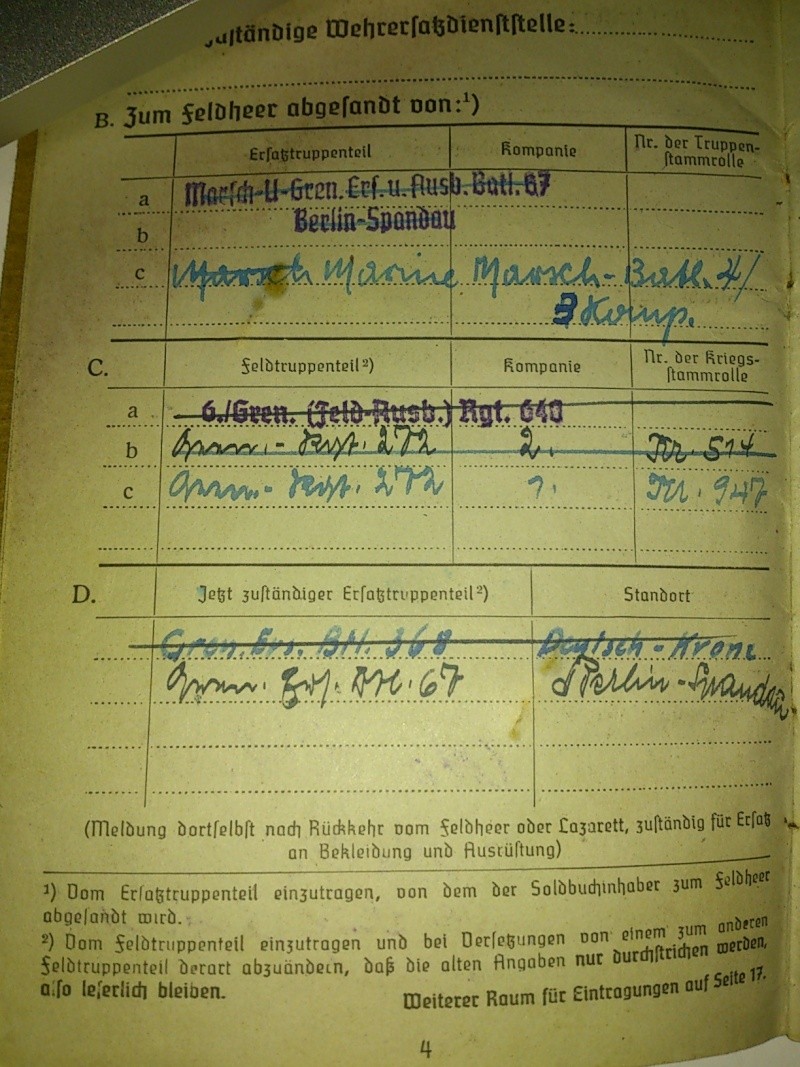 zuständige Wehrersatzdienststelle:
B. Zum Feldheer abgesandt von:¹)
Ersatztruppenteil Kompanie Nr. der Truppen-
stammrolle
a Marsch-U-Gren.Ers.u.Ausb.Batl.67
b Berlin-Spandau
c Marsch Marine Marsch-Batl. 4/
3 Komp.
C. Feldtruppenteil²) Kompanie Nr. der Kriegs-
stammrolle
a 6./Gren. (Feld-Ausb.) Rgt. 640
b Gren.-Regt. 272 2. Nr. 514
c Gren.-Regt. 272 Nr. 947
D. Jetzt zuständiger Ersatztruppenteil²) Standort
Gren. Ers. Btl. 368 Deutsch-Krone
Gren. Ers. Btl. 67 Berlin-Spandau
(Meldung dortselbst nach Rückkehr vom Feldheer oder Lazarett, zuständig für Ersatz
an Bekleidung und Ausrüstung)
¹) Vom Ersatztruppenteil einzutragen, von dem der Soldbuchinhaber zum Feldheer
abgesandt wird.
²) Vom Feldtruppenteil einzutragen und bei Versetzungen von einem zum anderen
Feldtruppenteil derart abzuändern, daß die alten Angaben nur durchstrichen werden,
also leserlich bleiben.
Weiterer Raum für Eintragungen auf Seite 17.
4